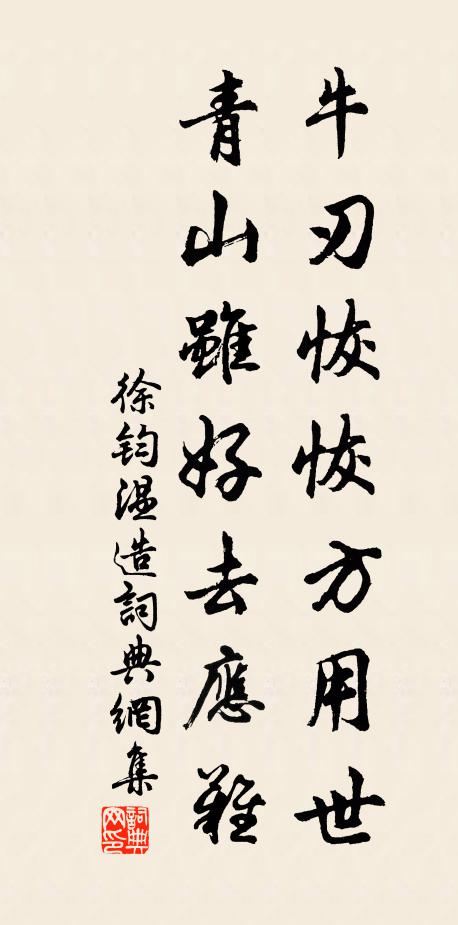 牛刃恢恢方用世
青山雖好去應難
徐鈞溫造詞典網集
詞典
网印